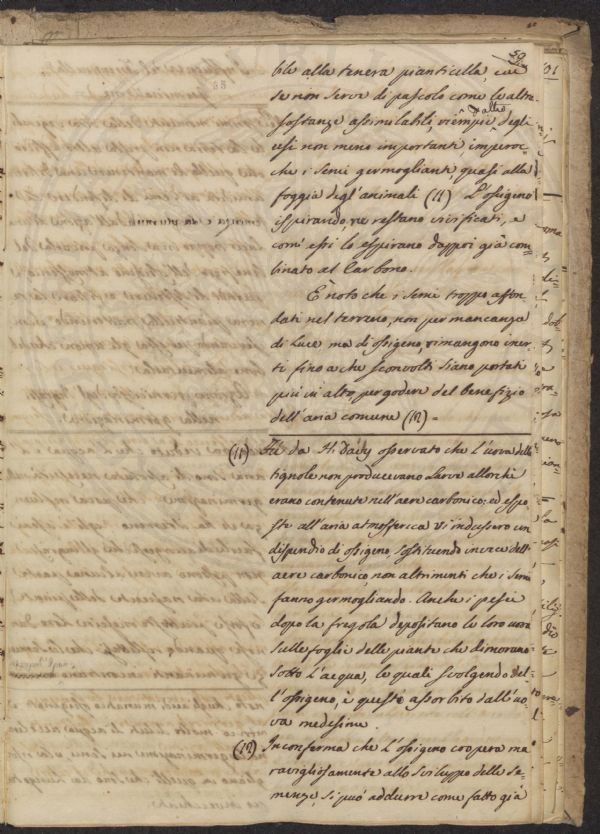 59
bile alla tenera pianticella, cui
se non serve di pascolo come le altre
sostanze assimilabili, riempie degli
altro
usi non meno importanti imperoc-
che i semi germoglianti quasi alla
foggia degl'animali (11) L'ossigeno
ispirando, ne restano vivificati, e
com'essi lo espirano dappoi già com-
binato al Carbono.
È noto che i semi troppo affon-
dati nel terreno, non per mancanza
di Luce ma di ossigeno, rimangono iner-
ti fino a che sconvolti siano portati
più in alto, per godere del benefizio
dell'aria comune (12) -
(11) Fù da H. Davy osservato che l'uova delle
tignole non producevano Larve allorchè
erano contenute nell'aere carbonico: ed espo-
ste all'aria atmosferica vi indussero un
dispendio di ossigeno, sostituendo invece dell'
aere carbonico non altrimenti che i semi
fanno germogliando. Anche i pesci
dopo la fregola depositano le loro uova
sulle foglie delle piante che dimorano
sotto L'acqua, le quali svolgendo del-
l'ossigeno, è questo assorbito dall'uo-
va medesime.
(12) In conferma che L'ossigeno coopera ma
ravigliosamente allo sviluppo delle se-
menze, si può addurre come fatto già